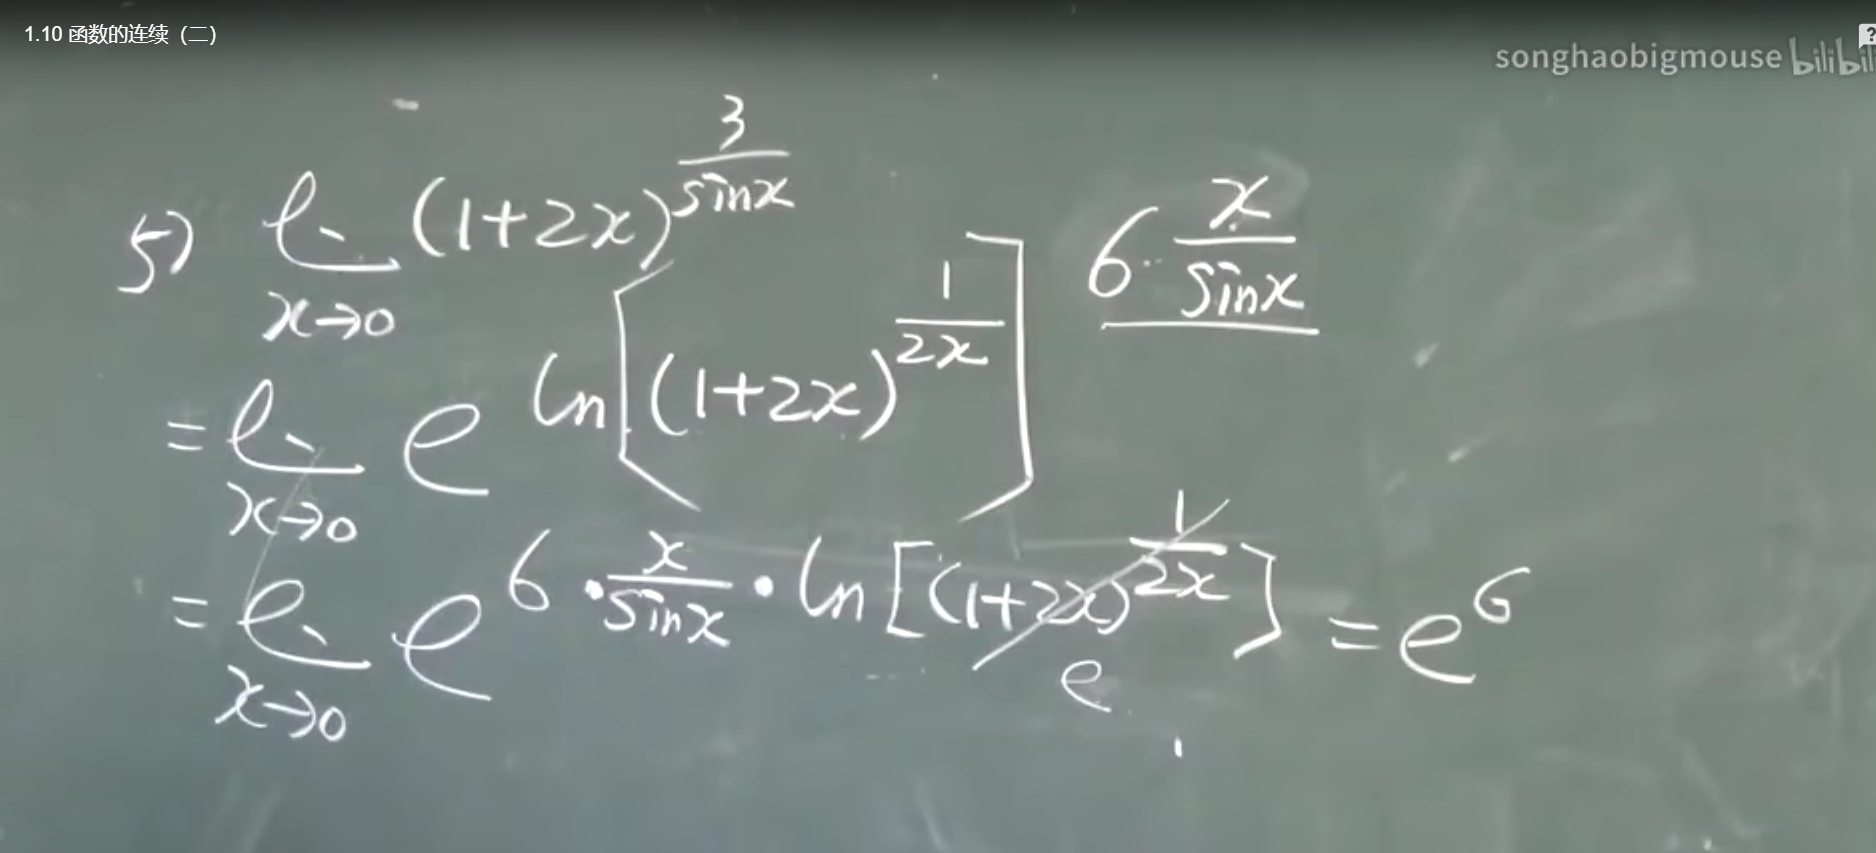 1.10 函数的连续（二）
songhaobigmouse bilibili
5) lim x→0 (1+2x)^(3/sinx)
= lim x→0 e^(ln[(1+2x)^(1/2x)]^(6·x/sinx))
= lim x→0 e^(6·x/sinx·ln[(1+2x)^(1/2x)]) = e^6
e